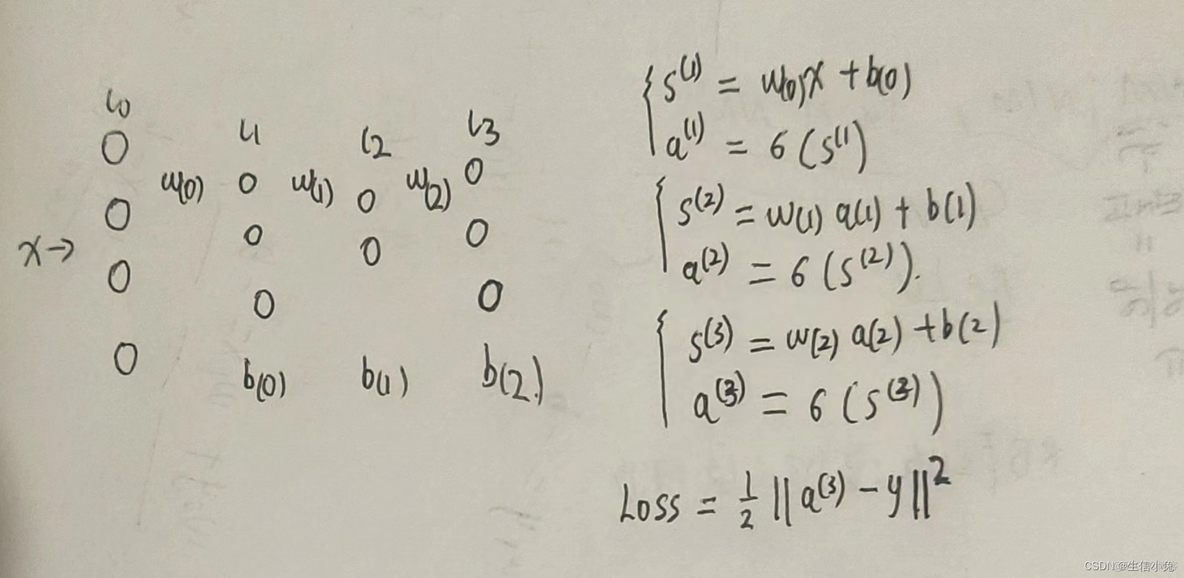 l0
l1
l2
l3
w(0)
w(1)
w(2)
x→
b(0)
b(1)
b(2)
s^(1) = w(0)x + b(0)
a^(1) = 6(s^(1))
s^(2) = w(1) a(1) + b(1)
a^(2) = 6(s^(2)).
s^(3) = w(2) a(2) + b(2)
a^(3) = 6(s^(3))
Loss = 1/2 ||a^(3) - y||^2
CSDN @生信小兔